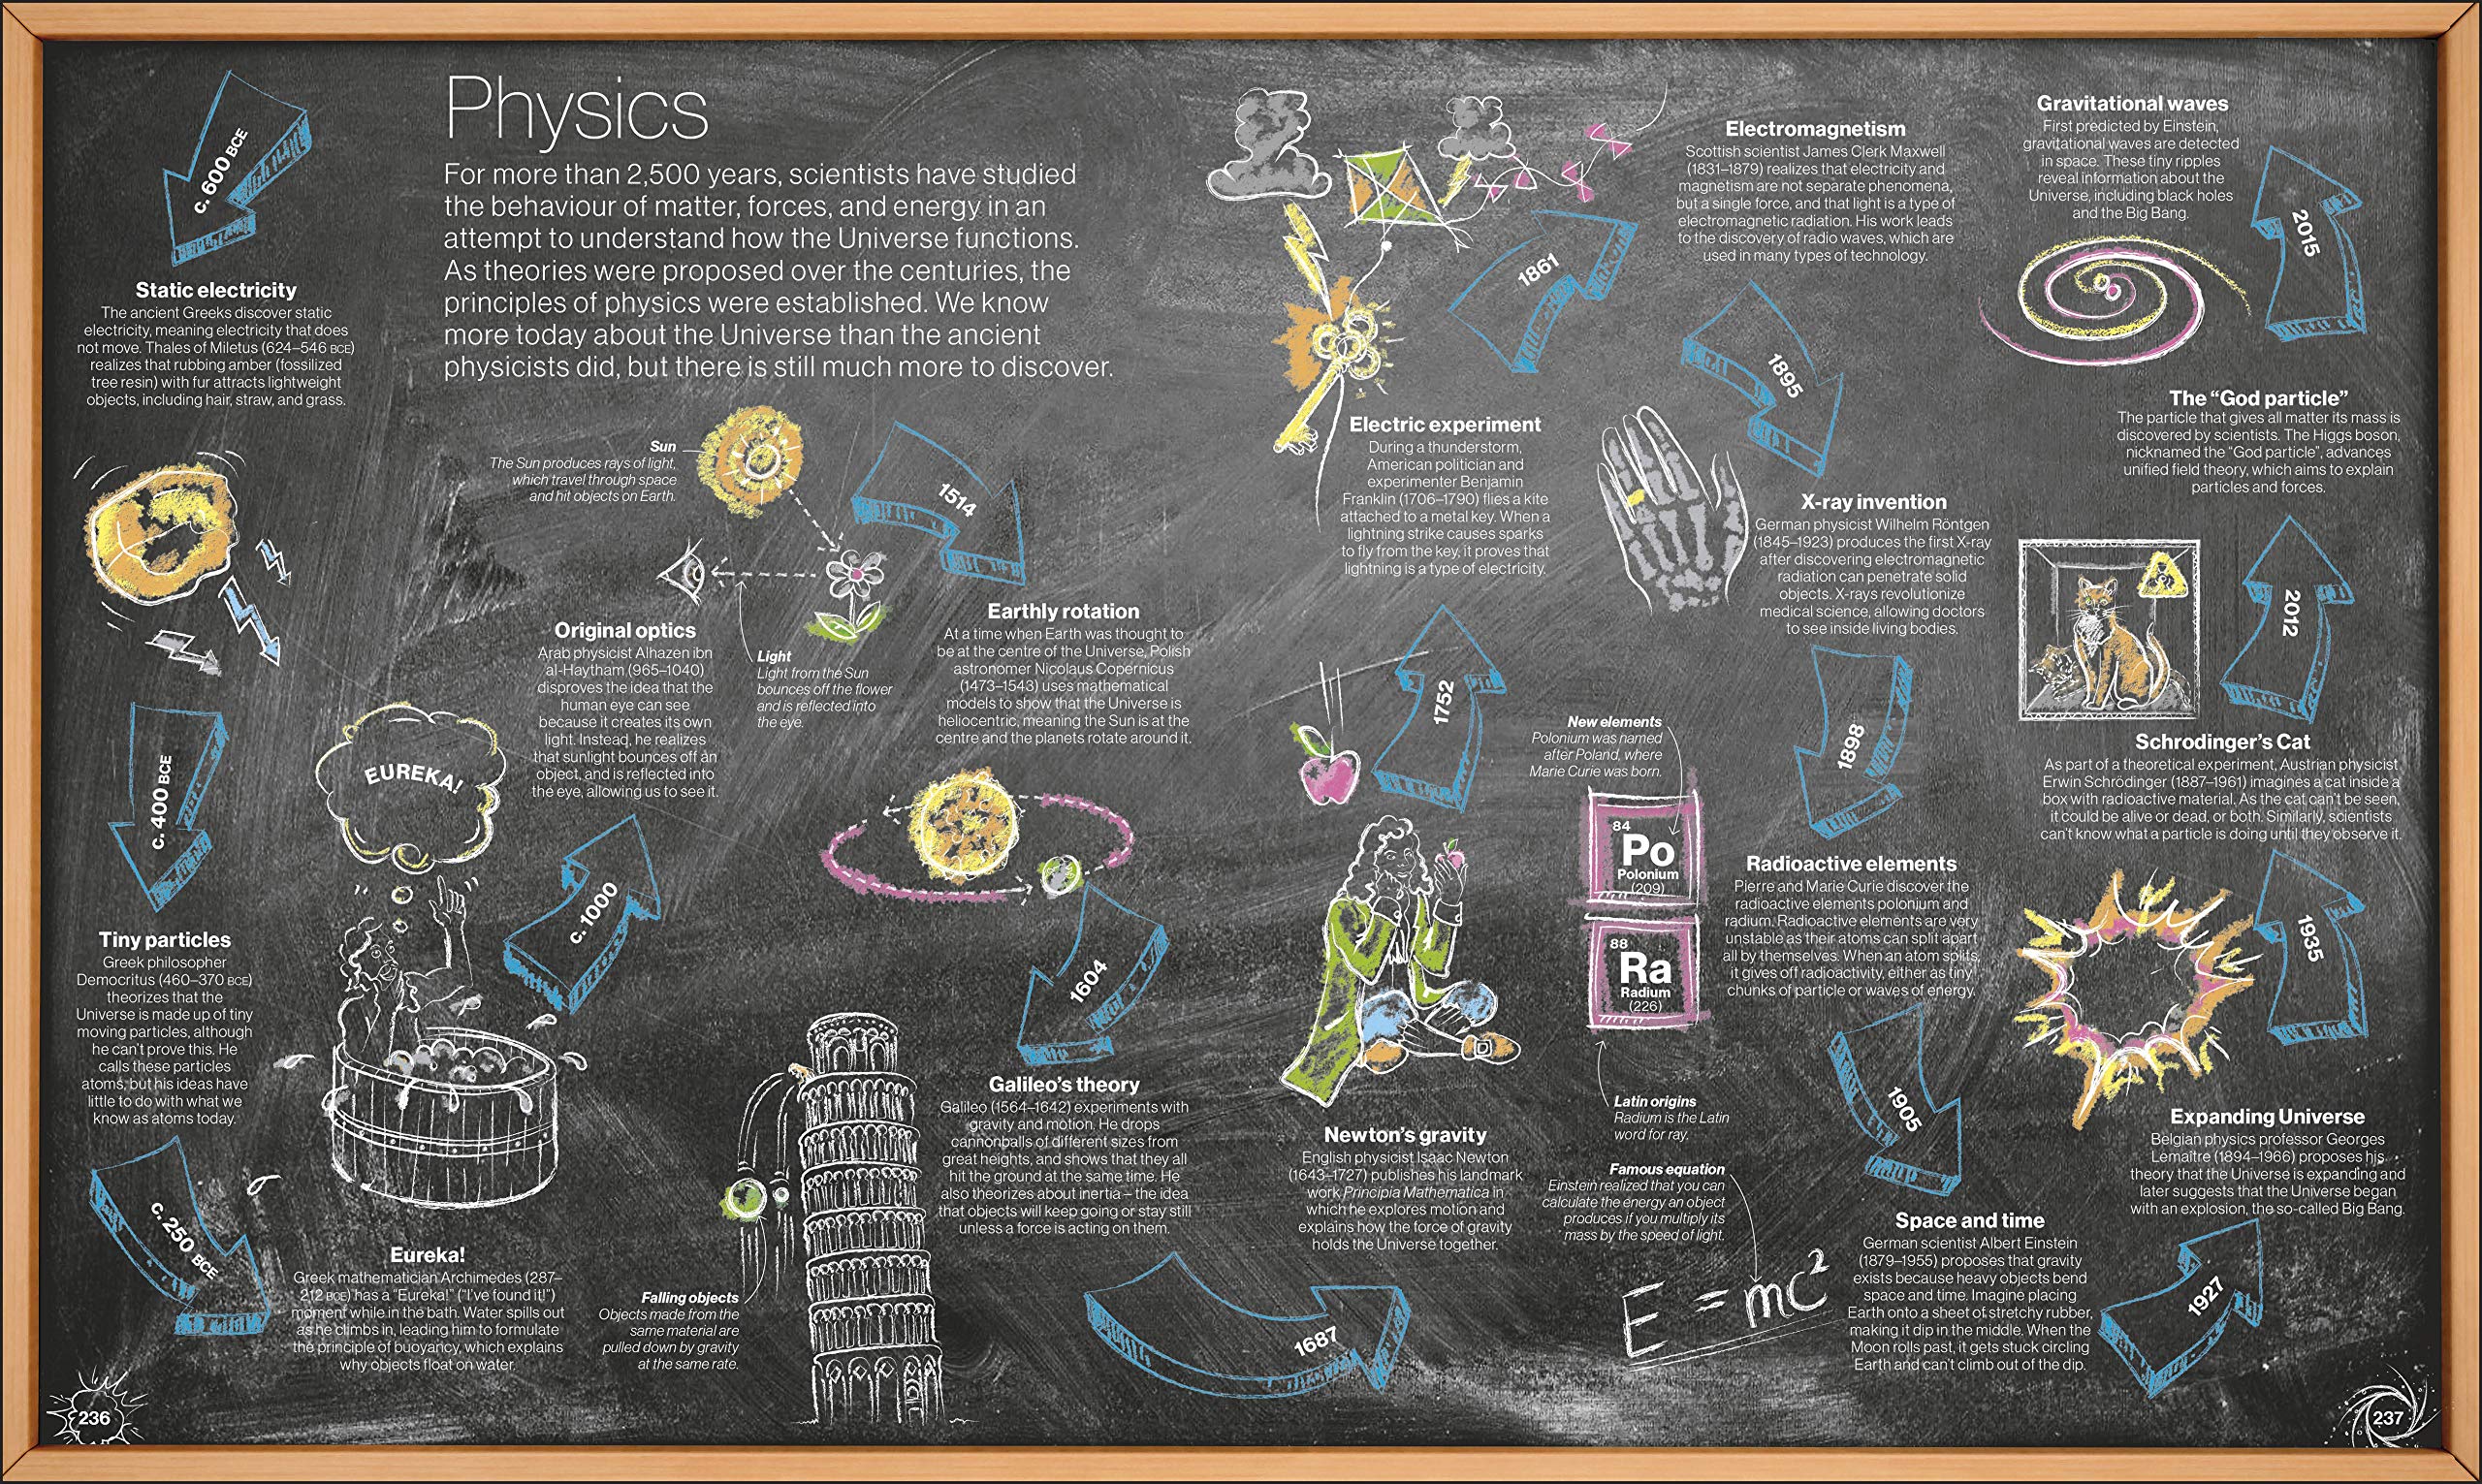 Physics
For more than 2,500 years, scientists have studied
the behaviour of matter, forces, and energy in an
attempt to understand how the Universe functions.
As theories were proposed over the centuries, the
principles of physics were established. We know
more today about the Universe than the ancient
physicists did, but there is still much more to discover.
c. 600 BCE
Static electricity
The ancient Greeks discover static
electricity, meaning electricity that does
not move. Thales of Miletus (624–546 BCE)
realizes that rubbing amber (fossilized
tree resin) with fur attracts lightweight
objects, including hair, straw, and grass.
c. 400 BCE
Tiny particles
Greek philosopher
Democritus (460–370 BCE)
theorizes that the
Universe is made up of tiny
moving particles, although
he can't prove this. He
calls these particles
atoms, but his ideas have
little to do with what we
know as atoms today.
c. 250 BCE
EUREKA!
Eureka!
Greek mathematician Archimedes (287–
212 BCE) has a "Eureka!" ("I've found it!")
moment while in the bath. Water spills out
as he climbs in, leading him to formulate
the principle of buoyancy, which explains
why objects float on water.
c. 1000
Sun
The Sun produces rays of light,
which travel through space
and hit objects on Earth.
Original optics
Arab physicist Alhazen ibn
al-Haytham (965–1040)
disproves the idea that the
human eye can see
because it creates its own
light. Instead, he realizes
that sunlight bounces off an
object, and is reflected into
the eye, allowing us to see it.
Light
Light from the Sun
bounces off the flower
and is reflected into
the eye.
1514
Earthly rotation
At a time when Earth was thought to
be at the centre of the Universe, Polish
astronomer Nicolaus Copernicus
(1473–1543) uses mathematical
models to show that the Universe is
heliocentric, meaning the Sun is at the
centre and the planets rotate around it.
1604
Galileo's theory
Galileo (1564–1642) experiments with
gravity and motion. He drops
cannonballs of different sizes from
great heights, and shows that they all
hit the ground at the same time. He
also theorizes about inertia – the idea
that objects will keep going or stay still
unless a force is acting on them.
Falling objects
Objects made from the
same material are
pulled down by gravity
at the same rate.
1687
Newton's gravity
English physicist Isaac Newton
(1643–1727) publishes his landmark
work Principia Mathematica in
which he explores motion and
explains how the force of gravity
holds the Universe together.
1752
Electric experiment
During a thunderstorm,
American politician and
experimenter Benjamin
Franklin (1706–1790) flies a kite
attached to a metal key. When a
lightning strike causes sparks
to fly from the key, it proves that
lightning is a type of electricity.
1861
Electromagnetism
Scottish scientist James Clerk Maxwell
(1831–1879) realizes that electricity and
magnetism are not separate phenomena,
but a single force, and that light is a type of
electromagnetic radiation. His work leads
to the discovery of radio waves, which are
used in many types of technology.
1895
X-ray invention
German physicist Wilhelm Röntgen
(1845–1923) produces the first X-ray
after discovering electromagnetic
radiation can penetrate solid
objects. X-rays revolutionize
medical science, allowing doctors
to see inside living bodies.
1898
New elements
Polonium was named
after Poland, where
Marie Curie was born.
84
Po
Polonium
(209)
88
Ra
Radium
(226)
Latin origins
Radium is the Latin
word for ray.
Radioactive elements
Pierre and Marie Curie discover the
radioactive elements polonium and
radium. Radioactive elements are very
unstable as their atoms can split apart
all by themselves. When an atom splits,
it gives off radioactivity, either as tiny
chunks of particle or waves of energy.
1905
Famous equation
Einstein realized that you can
calculate the energy an object
produces if you multiply its
mass by the speed of light.
E = mc²
Space and time
German scientist Albert Einstein
(1879–1955) proposes that gravity
exists because heavy objects bend
space and time. Imagine placing
Earth onto a sheet of stretchy rubber,
making it dip in the middle. When the
Moon rolls past, it gets stuck circling
Earth and can't climb out of the dip.
1927
Expanding Universe
Belgian physics professor Georges
Lemaître (1894–1966) proposes his
theory that the Universe is expanding and
later suggests that the Universe began
with an explosion, the so-called Big Bang.
1935
Schrodinger's Cat
As part of a theoretical experiment, Austrian physicist
Erwin Schrödinger (1887–1961) imagines a cat inside a
box with radioactive material. As the cat can't be seen,
it could be alive or dead, or both. Similarly, scientists
can't know what a particle is doing until they observe it.
2012
The "God particle"
The particle that gives all matter its mass is
discovered by scientists. The Higgs boson,
nicknamed the "God particle", advances
unified field theory, which aims to explain
particles and forces.
2015
Gravitational waves
First predicted by Einstein,
gravitational waves are detected
in space. These tiny ripples
reveal information about the
Universe, including black holes
and the Big Bang.
236
237